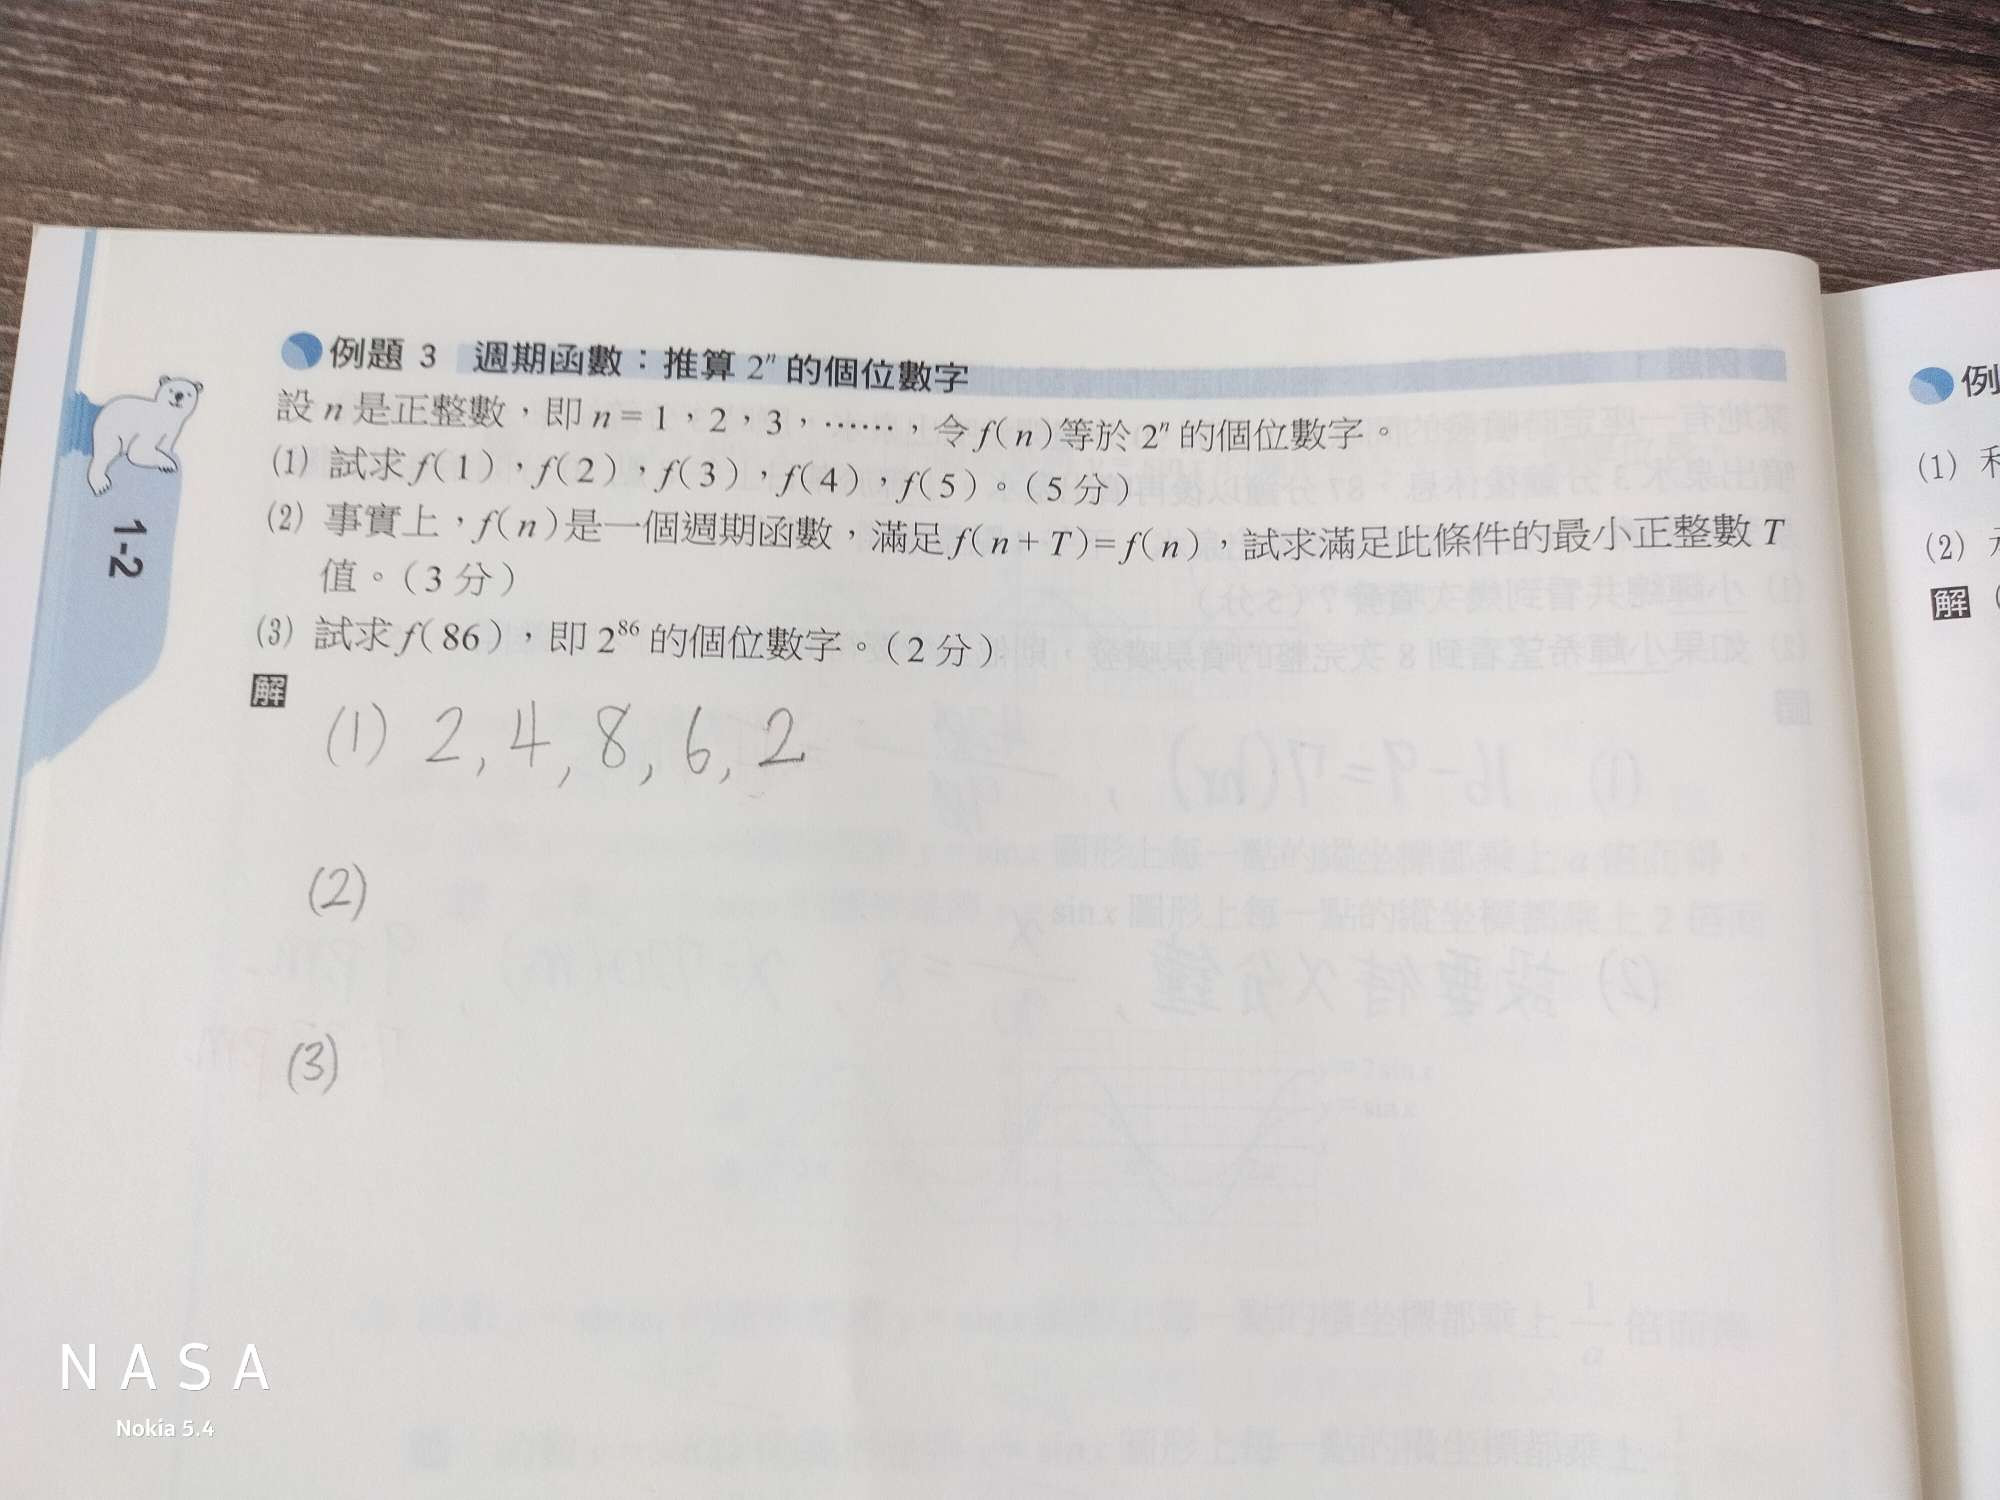 例題 3 週期函數：推算 2ⁿ 的個位數字
設 n 是正整數，即 n = 1，2，3，⋯⋯，令 f(n) 等於 2ⁿ 的個位數字。
(1) 試求 f(1)，f(2)，f(3)，f(4)，f(5)。(5 分)
(2) 事實上，f(n) 是一個週期函數，滿足 f(n + T) = f(n)，試求滿足此條件的最小正整數 T
值。(3 分)
(3) 試求 f(86)，即 2⁸⁶ 的個位數字。(2 分)
解
(1) 2, 4, 8, 6, 2
(2)
(3)
1-2
例
(1) 利
(2)
解 (
NASA
Nokia 5.4